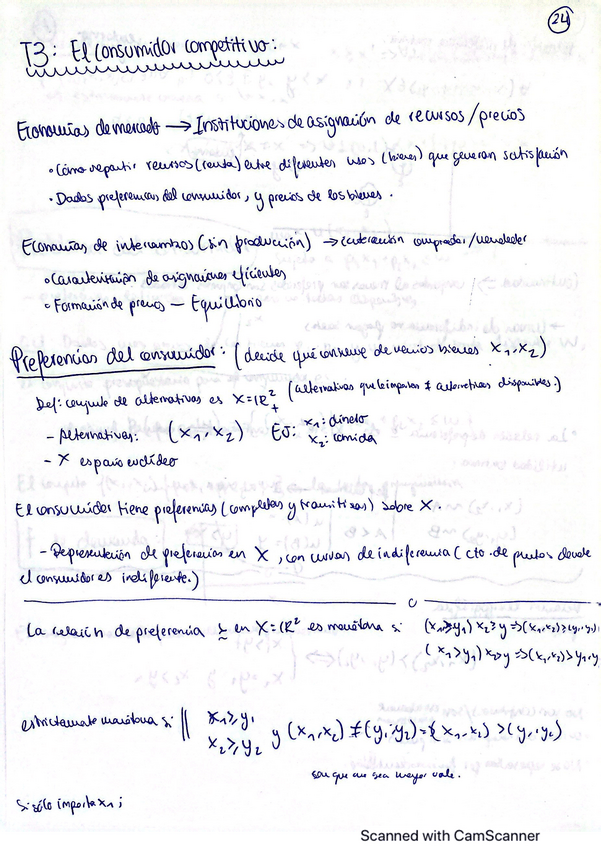 24
T3: El consumidor competitivo:
Economías de mercado → Instituciones de asignación de recursos / precios
• Cómo repartir recursos (renta) entre diferentes usos (bienes) que generan satisfacción
• Dadas preferencias del consumidor, y precios de los bienes.
Economías de intercambios (sin producción) → interacción comprador/vendedor
• Caracterización de asignaciones eficientes
• Formación de precios — Equilibrio
Preferencias del consumidor: (decide qué consume de varios bienes x₁, x₂)
Def: conjunto de alternativas es X=ℝ²₊ (alternativas que le importan ≠ alternativas disponibles.)
- Alternativas: (x₁, x₂) EJ: x₁: dinero
x₂: comida
- X espacio euclídeo
El consumidor tiene preferencias (completas y transitivas) sobre X.
- Representación de preferencias en X, con curvas de indiferencia (cto. de puntos donde
el consumidor es indiferente.)
La relación de preferencia ≿ en X=ℝ² es monótona si (x₁≥y₁) x₂≥y ⇒(x₁,x₂)≥(y₁,y₂)
(x₁>y₁) x₂>y ⇒(x₁,x₂)>y₁,y
estrictamente monótona si || x₁≥y₁
x₂≥y₂ y (x₁,x₂) ≠ (y₁,y₂) ⇒ (x₁,x₂) > (y₁,y₂)
con que uno sea mayor vale.
Si sólo importa x₁;
Scanned with CamScanner